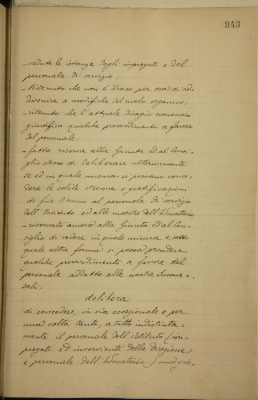 943
- vedute le istanze degli impiegati e del
personale di servizio;
- Ritenuto che non è il caso per ora di ad-
divenire a modifiche del ruolo organico;
- ritenuto che l'attuale disagio economico
giustifica qualche provvedimento a favore
del personale;
- fatta riserva alla Giunta ed al Consi-
glio stesso di deliberare ulteriormente
se ed in quale misura si possano conce-
dere le solite strenne o gratificazioni
di fine d'anno al personale di servizio
dell'Istituto ed alle maestre dell'Educatorio
- riservato ancora alla Giunta ed al Con-
siglio di vedere in quale misura e sotto
quale altra forma si possa prendere
qualche provvedimento a favore del
personale addetto alle nostre Scuole e-
sterne;
delibera
di concedere, in via eccezionale e per
una volta tanto, a tutto indistinta-
mente il personale dell'Istituto (im-
piegati ed inservienti della Direzione
e personale dell'Educatorio)